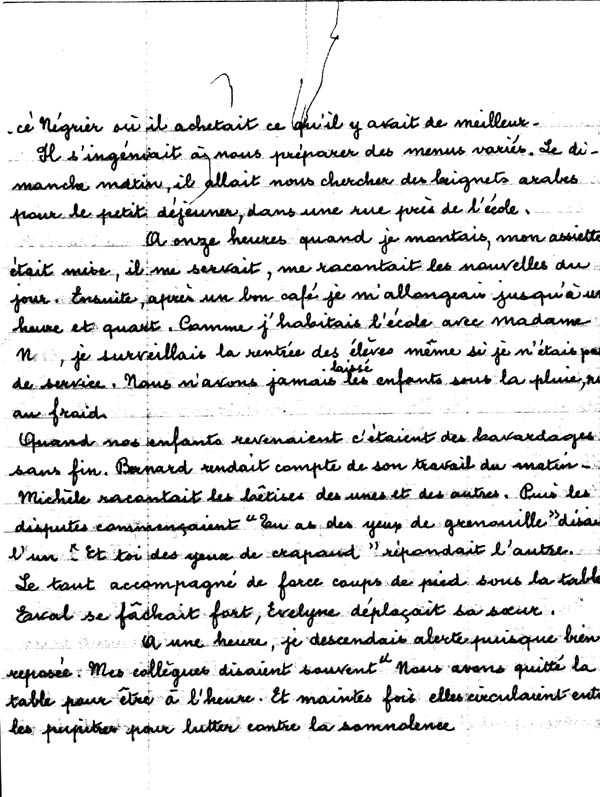 -cé Négrier où il achetait ce qu'il y avait de meilleur-
Il s'ingéniait à nous préparer des menus variés. Le di-
manche matin, il allait nous chercher des beignets arabes
pour le petit déjeuner, dans une rue près de l'école.
A onze heures quand je montais, mon assiette
était mise, il me servait, me racontait les nouvelles du
jour. Ensuite, après un bon café je m'allongeais jusqu'à un
heure et quart. Comme j'habitais l'école avec madame
N , je surveillais la rentrée des élèves même si je n'étais pas
de service. Nous n'avons jamais laissé les enfants sous la pluie,
au froid.
Quand nos enfants revenaient c'étaient des bavardages
sans fin. Bernard rendait compte de son travail du matin-
Michèle racontait les bêtises des unes et des autres. Puis les
disputes commençaient "Tu as des yeux de grenouille" disai
l'un "Et toi des yeux de crapaud" répondait l'autre.
Le tout accompagné de force coups de pied sous la table
Eval se fâchait fort, Evelyne déplaçait sa sœur.
A une heure, je descendais alerte puisque bien
reposée. Mes collègues disaient souvent "Nous avons quitté la
table pour être à l'heure. Et maintes fois elles circulaient ent
les pupitres pour lutter contre la somnolence